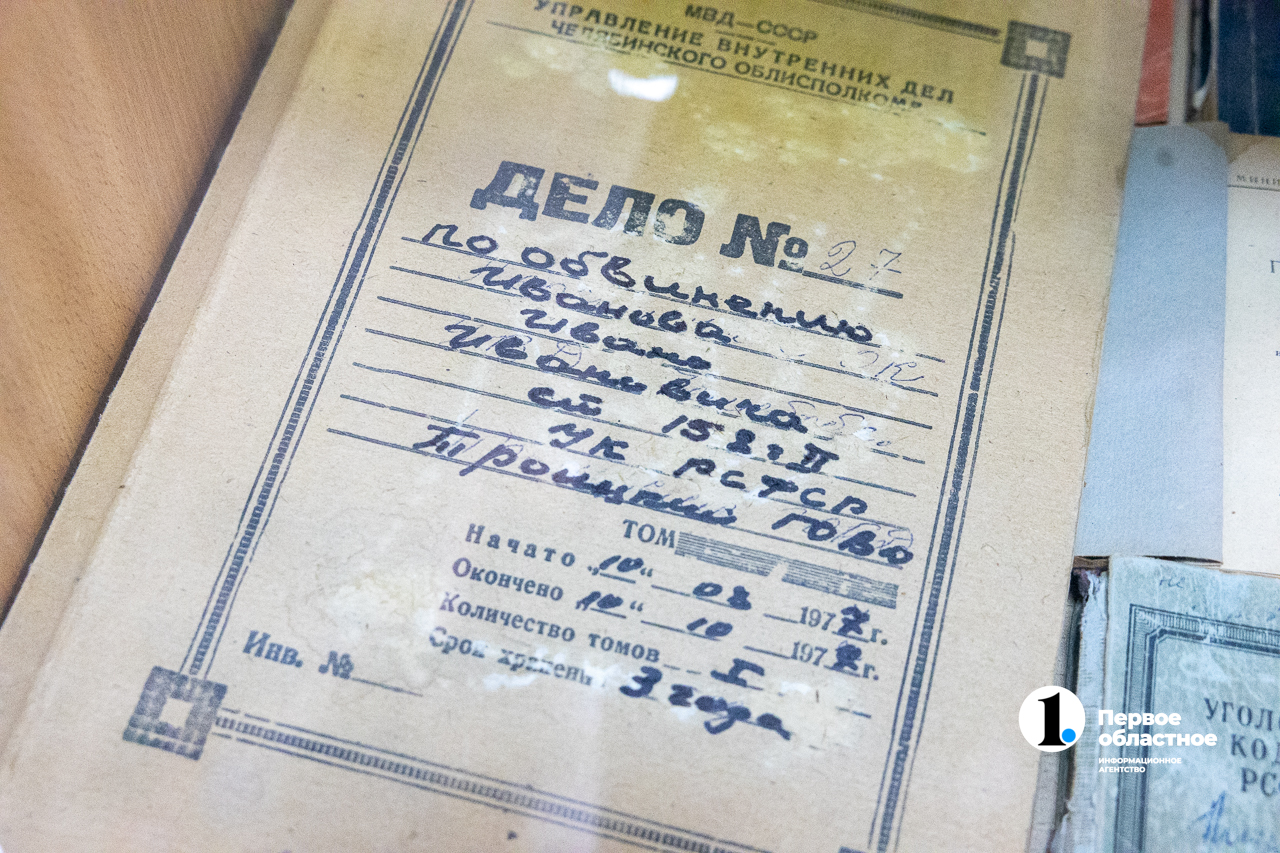 МВД—СССР
УПРАВЛЕНИЕ ВНУТРЕННИХ ДЕЛ
ЧЕЛЯБИНСКОГО ОБЛИСПОЛКОМА
ДЕЛО № 27
по обвинению
Иванова
Ивана
Ивановича
ст 158 ч II
УК РСФСР
Троицкий ГОВД
ТОМ
Начато „10“ 02 1977 г.
Окончено „10“ 10 1978 г.
Количество томов I
Срок хранены 3 года
Инв. №
УГОЛ
КОД
РС
1. Первое
областное
ИНФОРМАЦИОННОЕ
АГЕНТСТВО